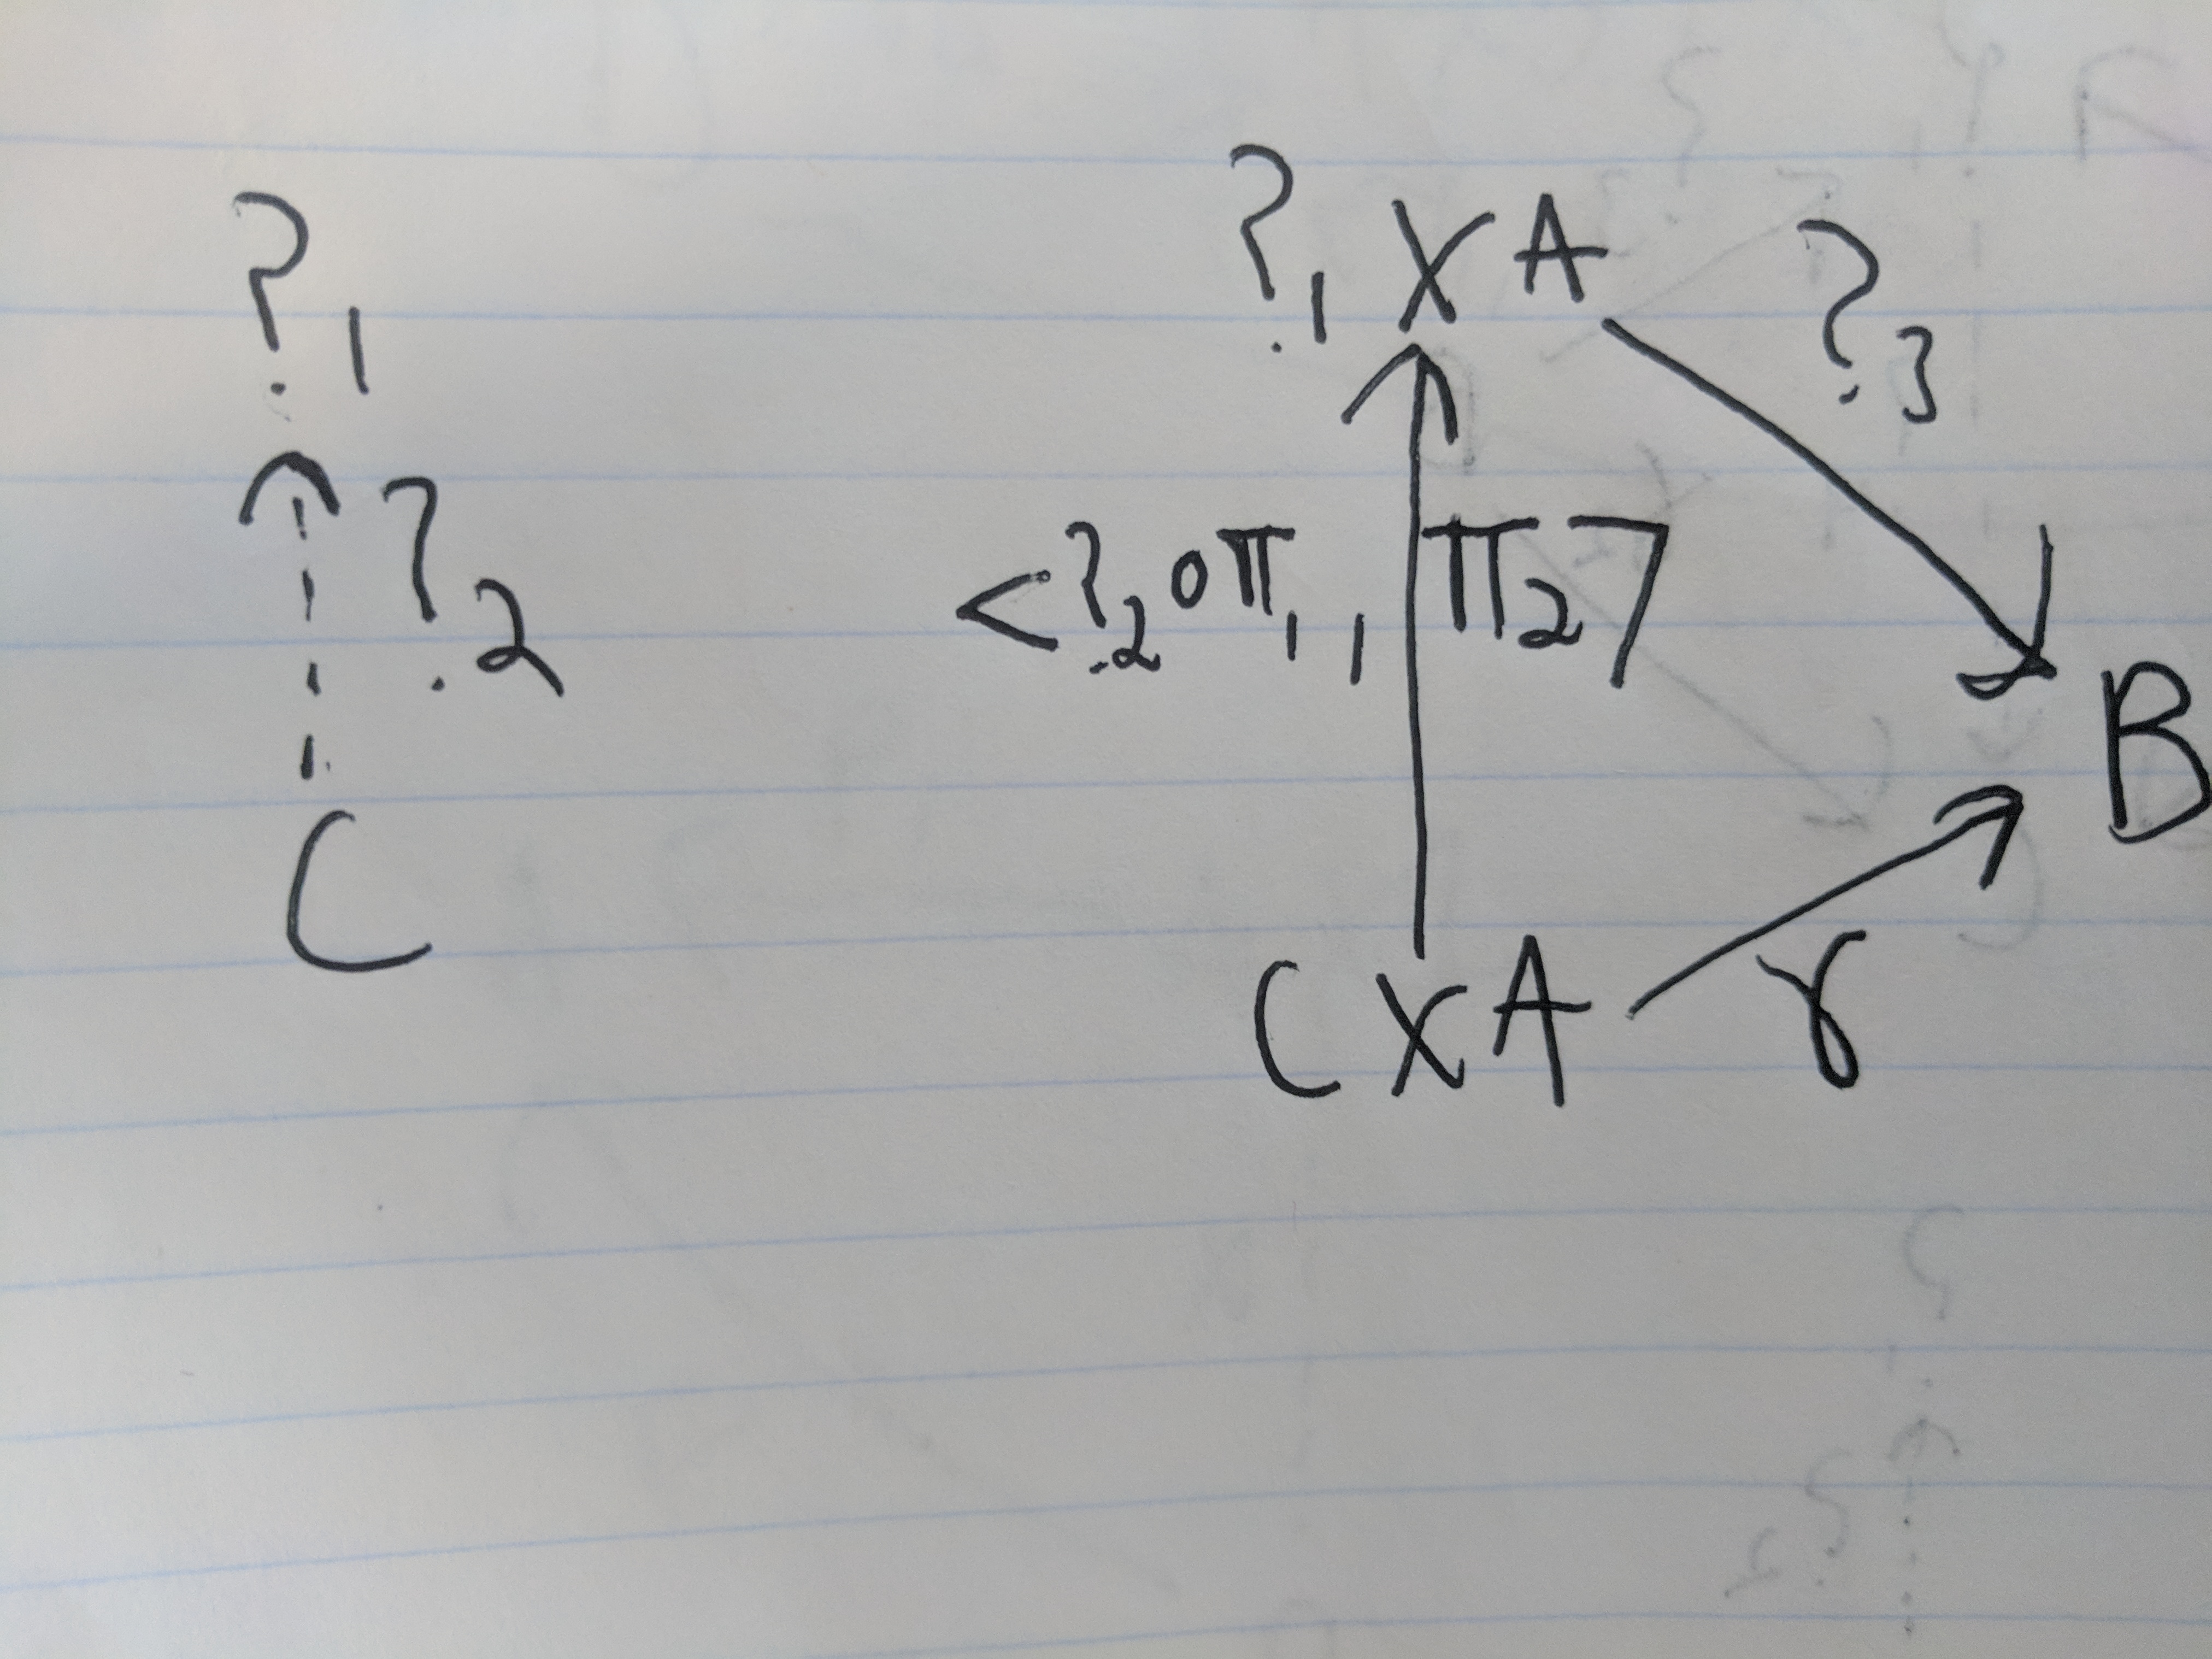 ?₁
?₂
C
?₁ X A
?₃
<?₂ ∘ π₁, π₂>
B
C X A
γ